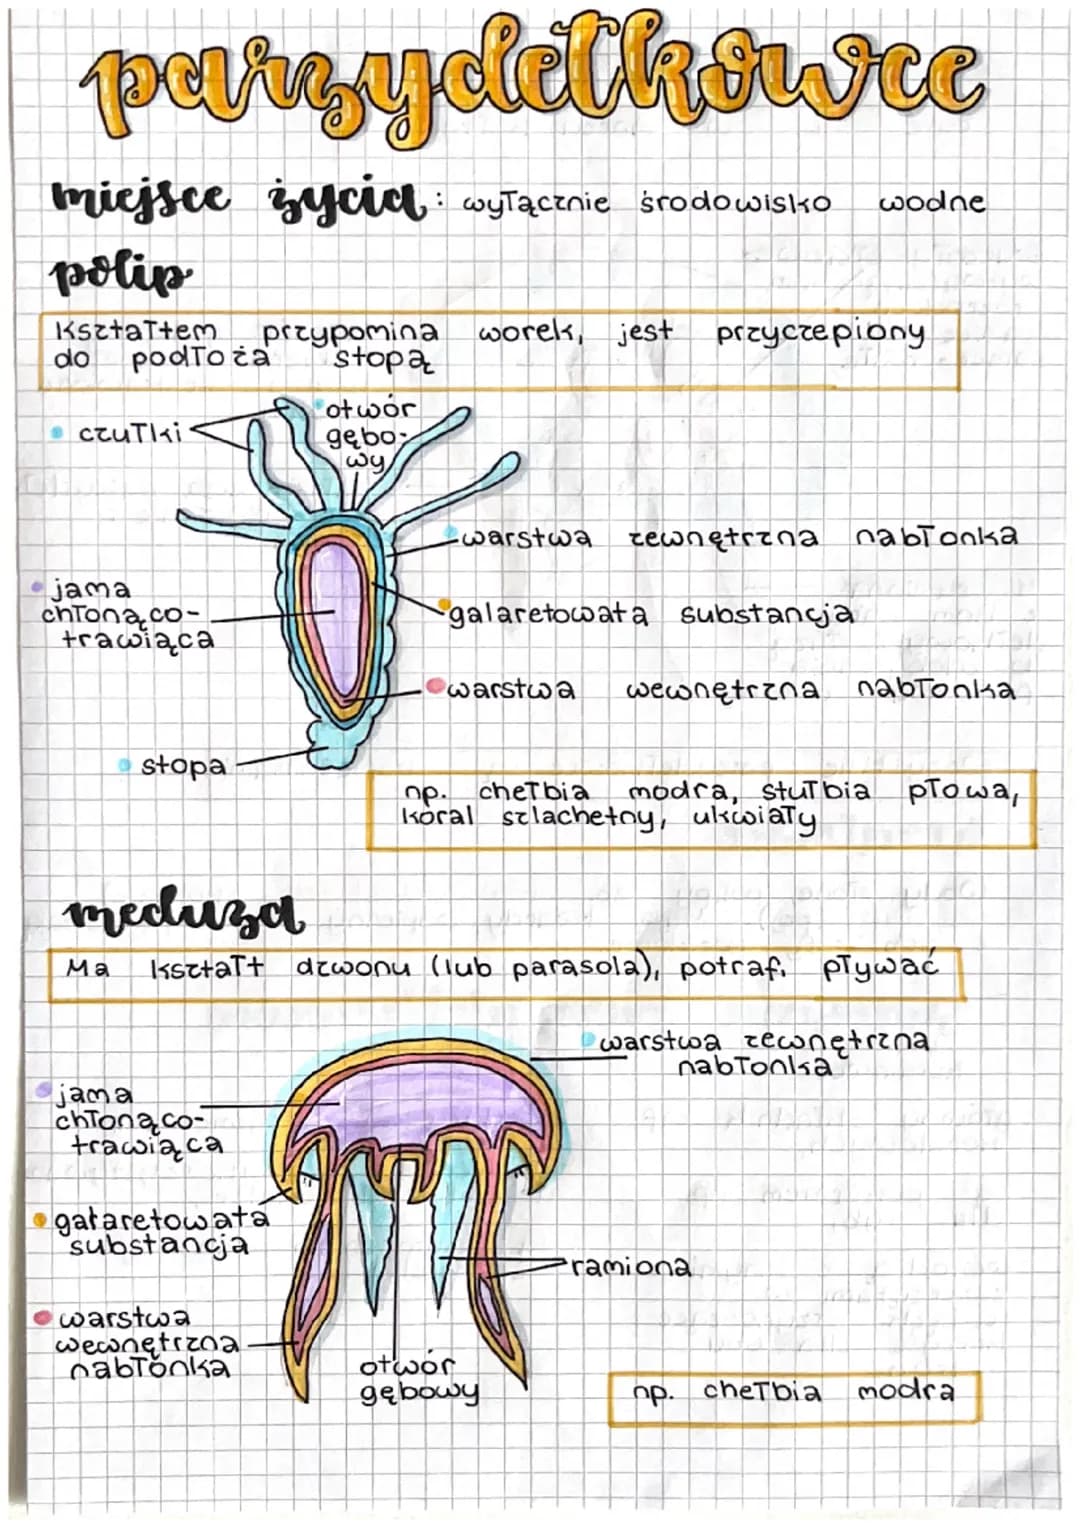 parzydełkowce
miejsce życia: wyłącznie środowisko wodne
polip
Kształtem przypomina worek, jest przyczepiony
do podłoża stopą
czułki
otwór
gębo-
wy
warstwa zewnętrzna nabłonka
jama
chłonąco-
trawiąca
galaretowata substancja
warstwa wewnętrzna nabłonka
stopa
np. chełbia modra, stułbia płowa,
koral szlachetny, ukwiały
meduza
Ma kształt dzwonu (lub parasola), potrafi pływać
warstwa zewnętrzna
nabłonka
jama
chłonąco-
trawiąca
gałaretowata
substancja
ramiona
warstwa
wewnętrzna
nabłonka
otwór
gębowy
np. chełbia modra